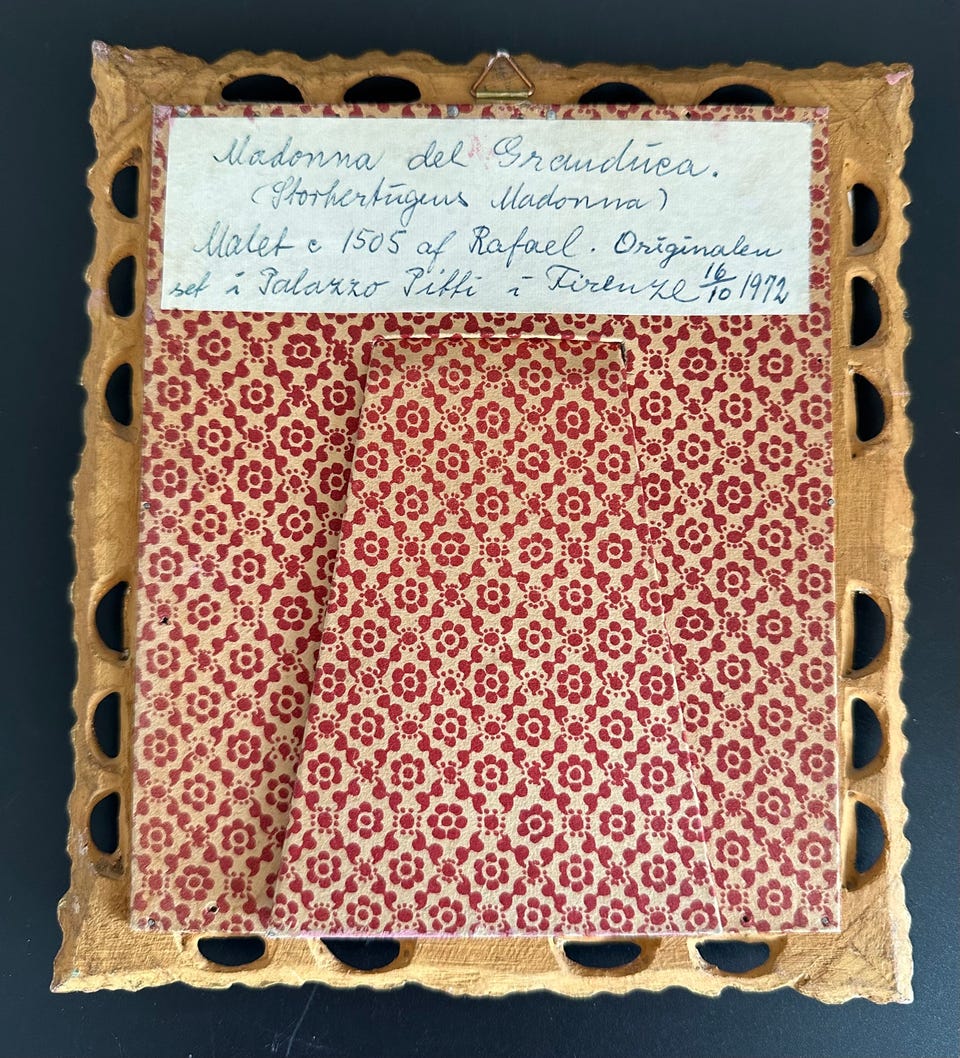 Madonna del Granduca.
(Storhertugens Madonna)
Malet c 1505 af Rafael. Originalen
set i Palazzo Pitti i Firenze 16/10 1972